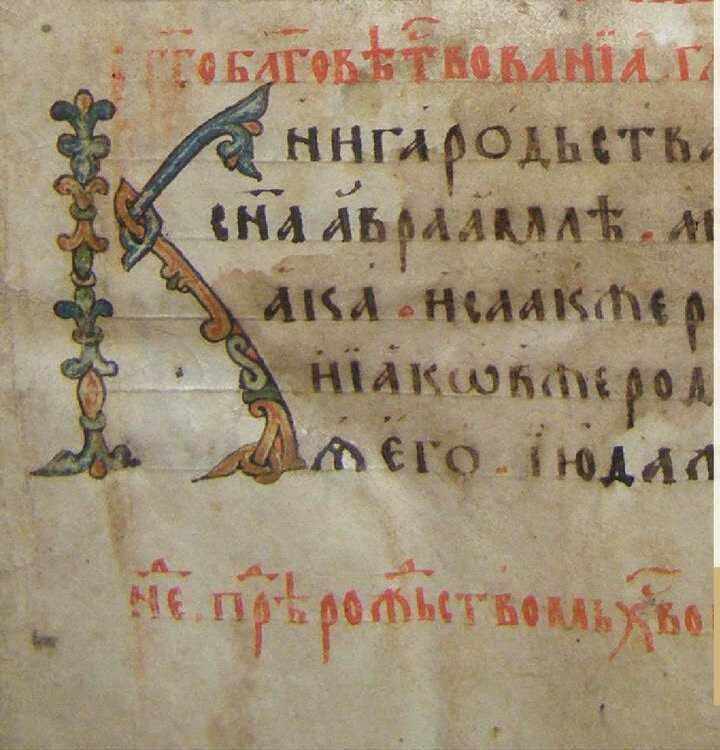 благовѣтвованїа гл
Книга родьства
сн҃а авраамлѣ .
ака . исаак же р
иїакѡв же род
ѧ его . їюда
не҃ . прѣ рожьствомь х҃во